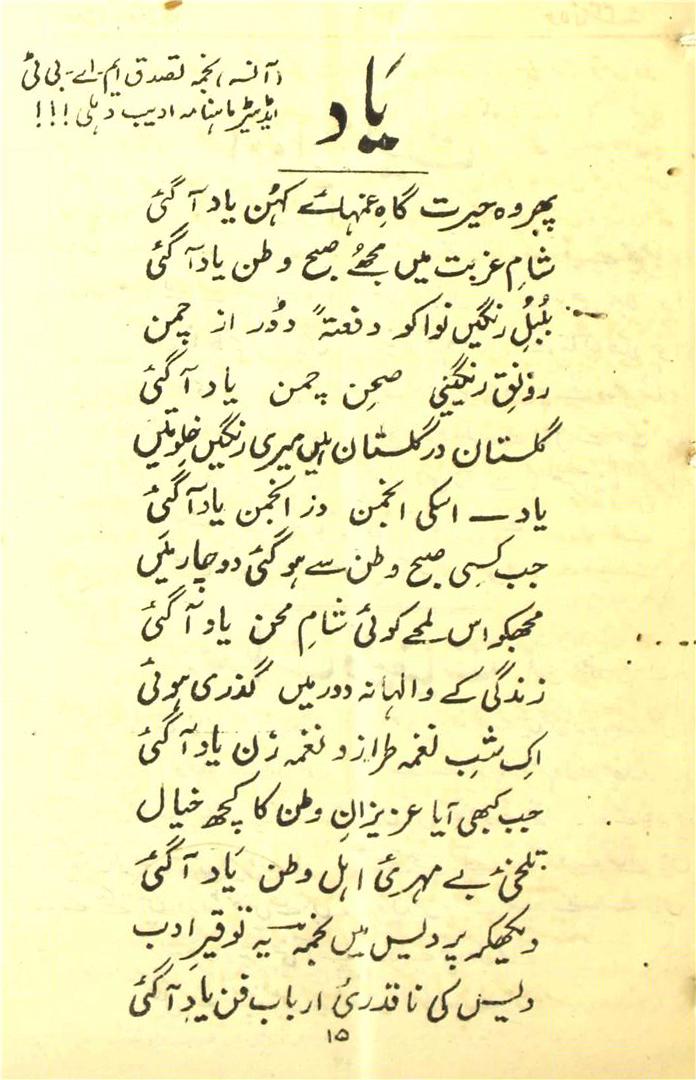 یاد
(آنسہ) نجمہ تصدق ایم-اے-بی ٹی
ایڈیٹر ماہنامہ ادیب دہلی!!!
پھر وہ حیرت گاہِ غمہائے کہن یاد آ گئی
شامِ غربت میں مجھے صبح وطن یاد آ گئی
بُلبُلِ رنگیں نوا کو دفعتہً دُور از چمن
رونقِ رنگینیِ صحنِ چمن یاد آ گئی
گلستان در گلستان ہیں میری رنگیں خلوتیں
یاد — اسکی انجمن در انجمن یاد آ گئی
جب کسی صبح وطن سے ہو گئی دوچار میں
مجھکو اس لمحے کوئی شامِ محن یاد آ گئی
زندگی کے والہانہ دور میں گذری ہوئی
اک شبِ نغمہ طراز و نغمہ زن یاد آ گئی
جب کبھی آیا عزیزانِ وطن کا کچھ خیال
تلخئ بے مہرئ اہل وطن یاد آ گئی
دیکھکر پردیس میں نجمہ یہ توقیرِ ادب
دیس کی ناقدرئ ارباب فن یاد آ گئی
۱۵